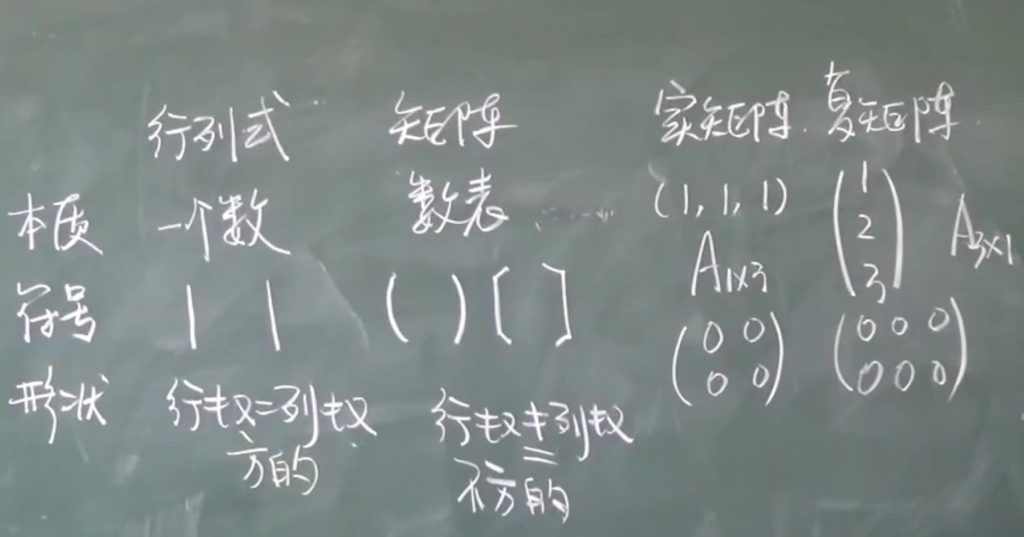 行列式 矩阵 实矩阵. 复矩阵.
本质 一个数 数表 (1, 1, 1) (1 2 3) A₃ₓ₁
A₁ₓ₃
符号 | | ( ) [ ]
(0 0
0 0)
(0 0 0
0 0 0)
形状 行数=列数 行数≠列数
=
方的 不方的